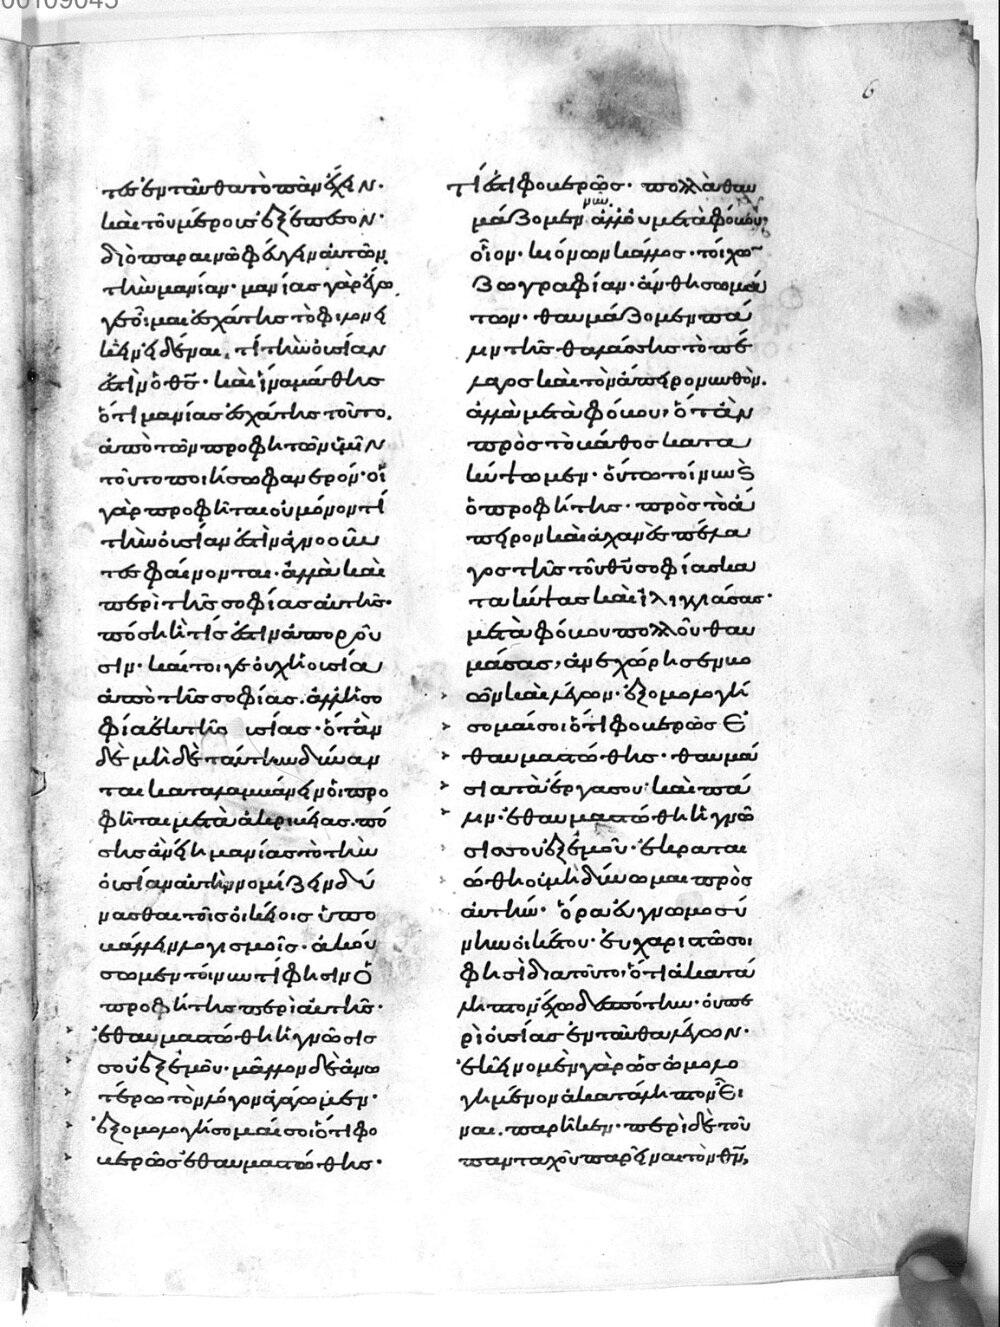 00109045
6
τες ἐνταῦθα τὸ πᾶν ἔχειν·
καὶ τοῦ μέρους ἐξέπεσον·
διὸ παραινῶ φεύγειν αὐτῶν
τὴν μανίαν· μανίας γὰρ ἔγω
γε οἶμαι ἐσχάτης τὸ φιλονει
κεῖν εἰδέναι, τί τὴν οὐσίαν
ἐστὶν ὁ θς· καὶ ἵνα μάθης
ὅτι μανίας ἐσχάτης τοῦτο,
ἀπὸ τῶν προφητῶν ὑμῖν
τοῦτο ποιήσω φανερόν· οἱ
γὰρ προφῆται οὐ μόνον τί
τὴν οὐσίαν ἐστὶν ἀγνοοῦν
τες φαίνονται· ἀλλὰ καὶ
περὶ τῆς σοφίας αὐτῆς·
πόση τίς ἐστιν ἀποροῦ
σιν· καίτοι γε οὐχ ἡ οὐσία
ἀπὸ τῆς σοφίας· ἀλλ' ἡ σο
φία ἐκ τῆς οὐσίας· ὅταν
δὲ μηδὲ ταύτην δύναν
ται καταλαμβάνειν οἱ προ
φῆται μετὰ ἀκριβείας· πό
σης ἂν εἴη μανίας τὸ τὴν
οὐσίαν αὐτὴν νομίζειν δύ
νασθαι τοῖς οἰκείοις ὑπο
βάλλειν λογισμοῖς· ἀκού
σωμεν τοίνυν τί φησιν ὁ
προφήτης περὶ αὐτῆς·
ἐθαυμαστώθη ἡ γνῶσίς
σου ἐξ ἐμοῦ· μᾶλλον δὲ ἀνω
τέρω τὸν λόγον ἀγάγωμεν·
ἐξομολογήσομαί σοι ὅτι φο
βερῶς ἐθαυμαστώθης·
τί ἐστι φοβερῶς· πολλὰ θαυ
μάζομεν νῦν· ἀλλ' οὐ μετὰ φόβου·
οἷον· κιόνων κάλλος· τοίχων
ζωγραφίαν· ἄνθη σωμά
των· θαυμάζομεν πά
λιν τῆς θαλάσσης τὸ πέ
λαγος καὶ τὸν ἄπειρον βυθόν·
ἀλλὰ μετὰ φόβου, ὅταν
πρὸς τὸ βάθος κατα
κύψωμεν· οὕτω τοίνυν καὶ
ὁ προφήτης· πρὸς τὸ ἄ
πειρον καὶ ἀχανὲς πέλα
γος τῆς τοῦ θυ σοφίας κα
τακύψας καὶ ἰλιγγιάσας·
μετὰ φόβου πολλοῦ θαυ
μάσας, ἀνεχώρησε βο
ῶν καὶ λέγων· ἐξομολογή
σομαί σοι ὅτι φοβερῶς ἐ
θαυμαστώθης· θαυμά
σια τὰ ἔργα σου· καὶ πά
λιν· ἐθαυμαστώθη ἡ γνῶ
σίς σου ἐξ ἐμοῦ· ἐκραται
ώθη οὐ μὴ δύνωμαι πρὸς
αὐτήν· ὅρα εὐγνωμοσύ
νην οἰκέτου· εὐχαριστῶ σοι
φησὶ διὰ τοῦτο, ὅτι ἀκατά
ληπτον ἔχω δεσπότην· οὐ πε
ρὶ οὐσίας ἐνταῦθα λέγων·
ἐκεῖνο μὲν γὰρ ὡς ὡμολο
γημένον ἀκατάληπτον εἶ
ναι, παρῆκεν· περὶ δὲ τοῦ
πανταχοῦ παρεῖναι τὸν θν,